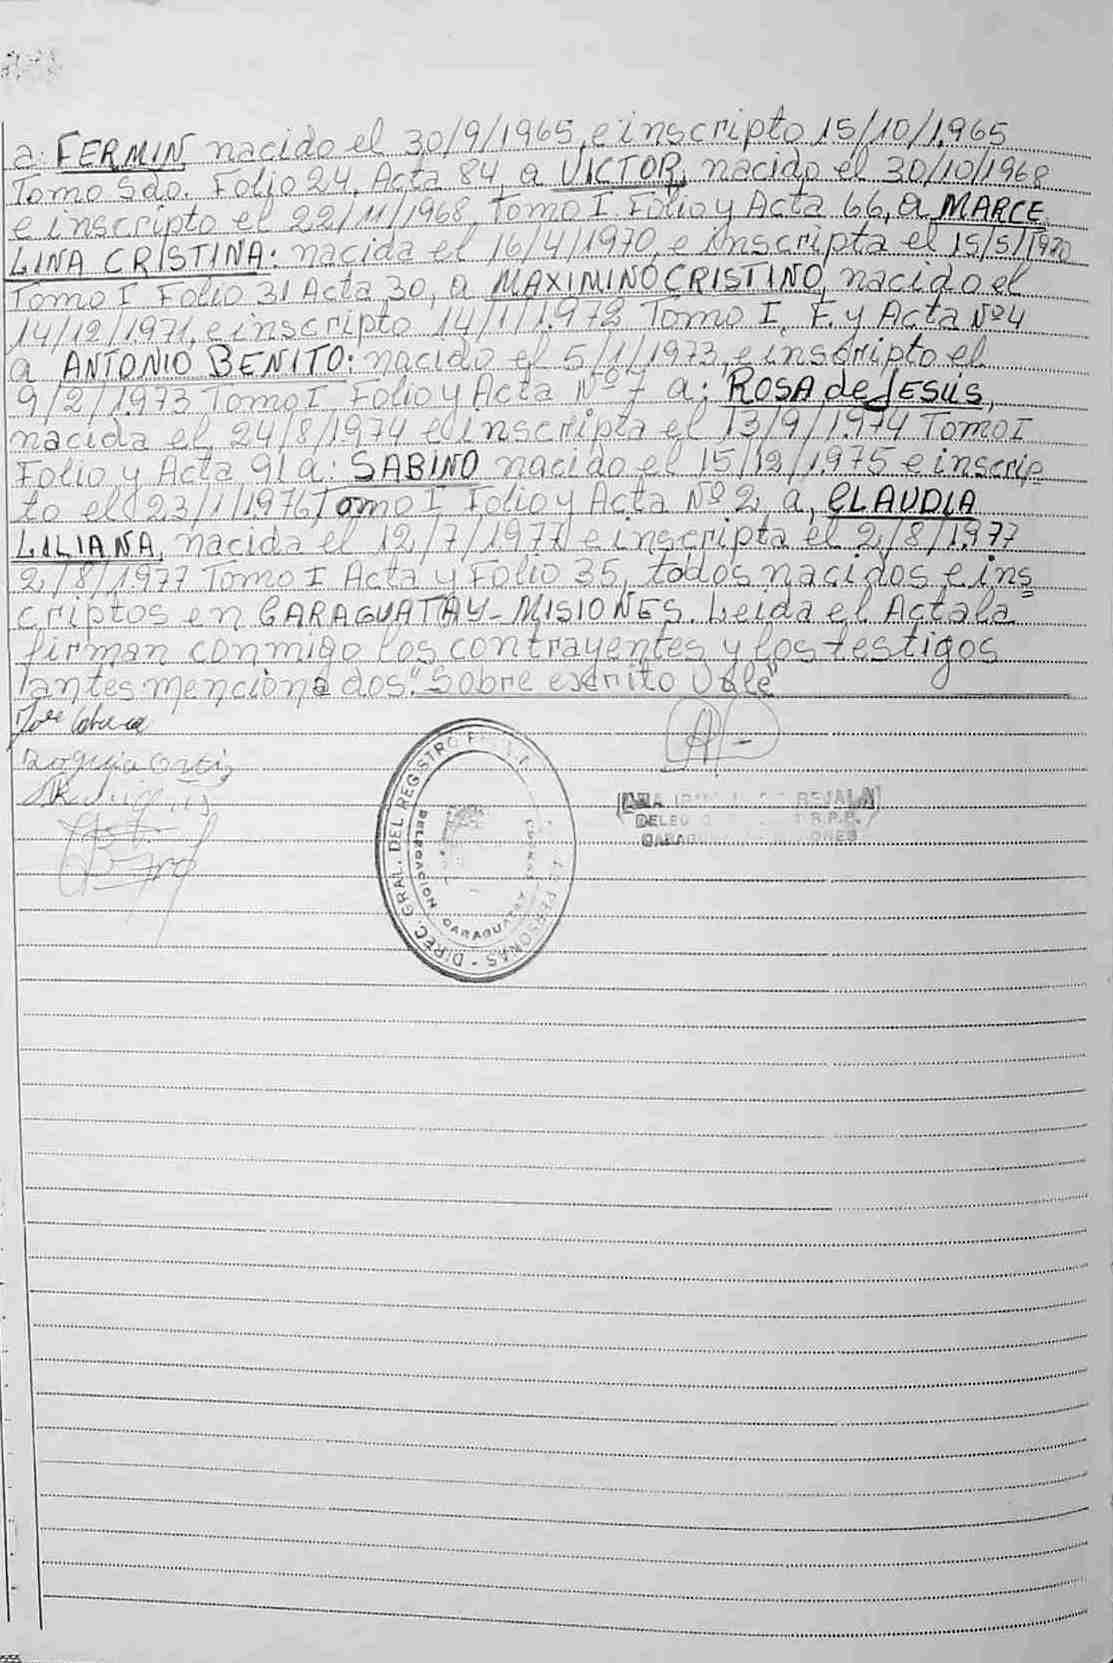 a: FERMIN, nacido el 30/9/1965, e inscripto 15/10/1.965
Tomo Sdo. Folio 24, Acta 84, a VICTOR, nacido el 30/10/1968
e inscripto el 22/11/1968, Tomo I Folio y Acta 66, a MARCE
LINA CRISTINA: nacida el 16/4/1970, e inscripta el 15/5/1970
Tomo I Folio 31 Acta 30, a MAXIMINO CRISTINO, nacido el
14/12/1971, e inscripto 14/1/1.972 Tomo I, F. y Acta Nº 4
a ANTONIO BENITO: nacido el 5/1/1973, e inscripto el
9/2/1.973 Tomo I, Folio y Acta Nº 7 a: ROSA de JESÚS,
nacida el 24/8/1974 e inscripta el 13/9/1.974 Tomo I
Folio y Acta 91 a: SABINO nacido el 15/12/1.975 e inscrip-
to el 23/1/1976 Tomo I Folio y Acta Nº 2, a, CLAUDIA
LILIANA, nacida el 12/7/1977 e inscripta el 2/8/1.977
2/8/1977 Tomo I Acta y Folio 35, todos nacidos e ins
criptos en CARAGUATAY-MISIONES. Leida el Acta la
firman conmigo los contrayentes y los testigos
antes mencionados. "Sobre escrito Vale"
Jose
Ortiz
DIREC. GRAL. DEL REGISTRO PERSONAS
DELEGACION CARAGUATAY